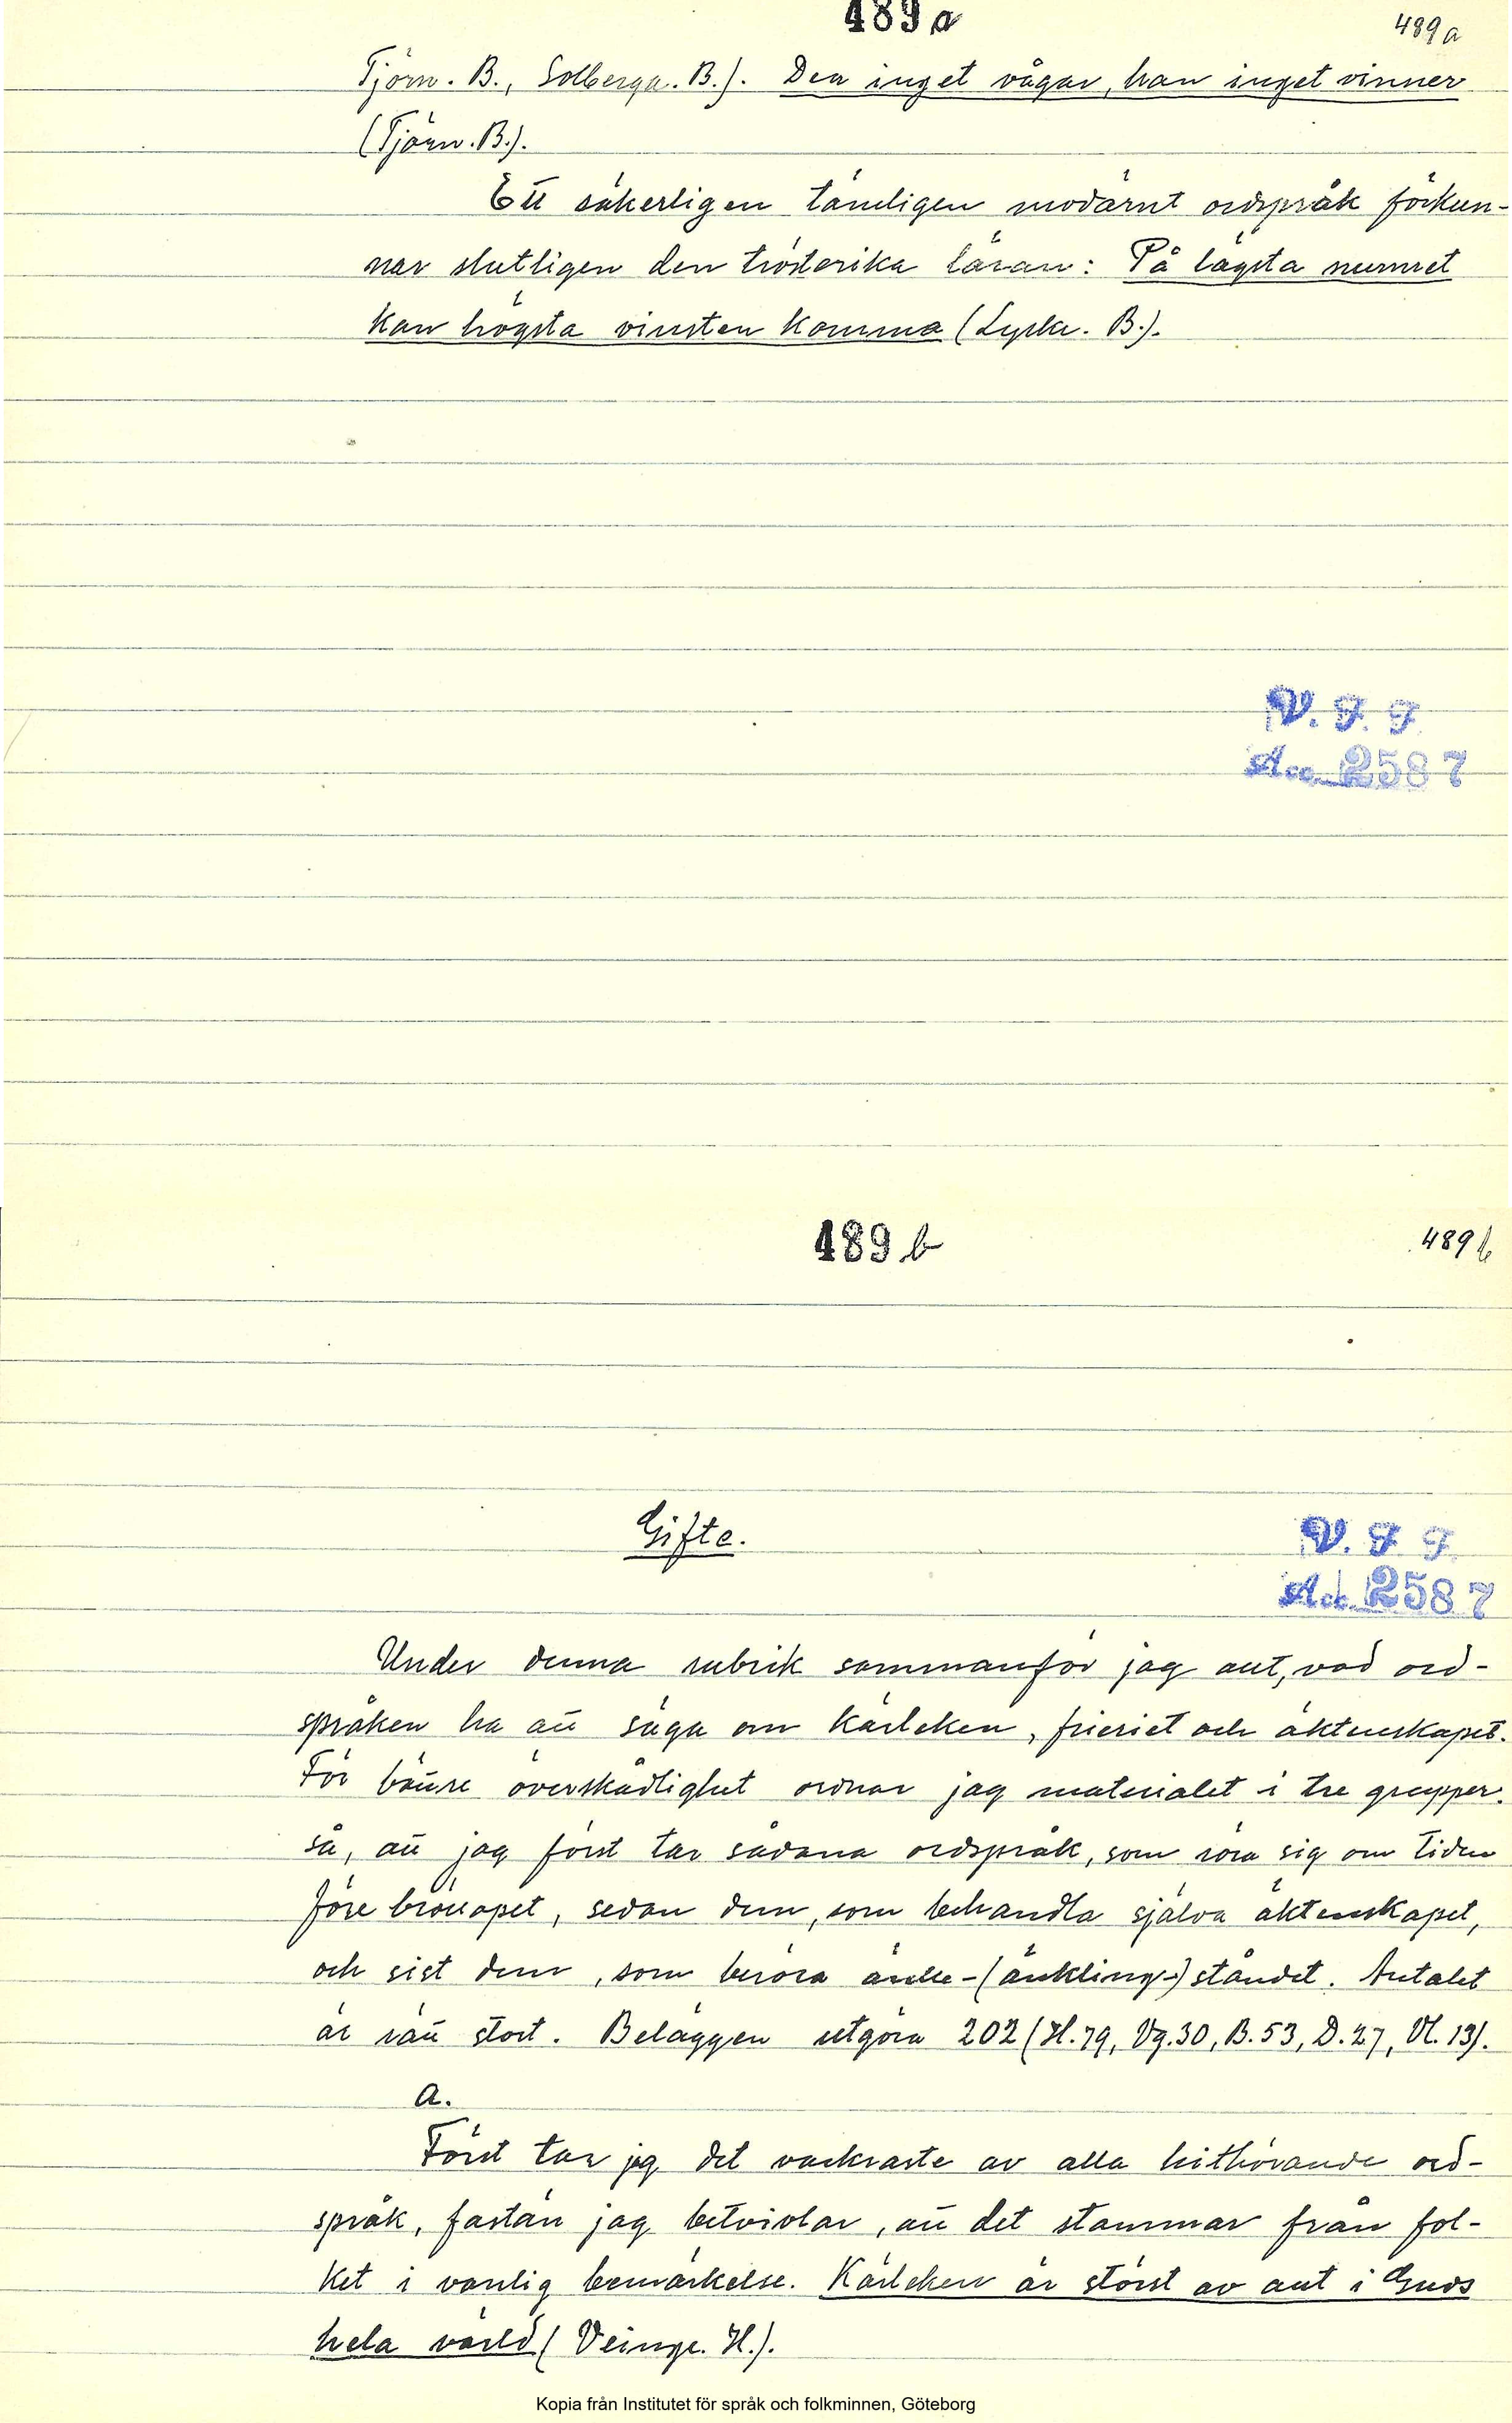 489 a
489 a
Tjörn. B., Solberga. B.). Den inget vågar, han inget vinner
(Tjörn. B.).
Ett säkerligen tämligen modärnt ordspråk förkun-
nar slutligen den trösterika läran: På lägsta numret
kan högsta vinsten komma (Lyske. B.).
V. F. F.
Acc. 2587
489 b
489 b
Gifte.
V. F. F.
Acc. 2587
Under denna rubrik sammanför jag allt, vad ord-
språken ha att säga om kärleken, frieriet och äktenskapet.
För bättre överskådlighet ordnar jag materialet i tre grupper.
så, att jag först tar sådana ordspråk, som röra sig om tiden
före bröllopet, sedan dem, som behandla själva äktenskapet,
och sist dem, som beröra änke-(änklings-)ståndet. Antalet
är rätt stort. Beläggen utgöra 202 (H. 79, Vg. 30, B. 53, D. 27, Vl. 13).
a.
Först tar jag det vackraste av alla hithörande ord-
språk, fastän jag betvivlar, att det stammar från fol-
ket i vanlig bemärkelse. Kärleken är störst av allt i Guds
hela värld (Veinge. H.).
Kopia från Institutet för språk och folkminnen, Göteborg